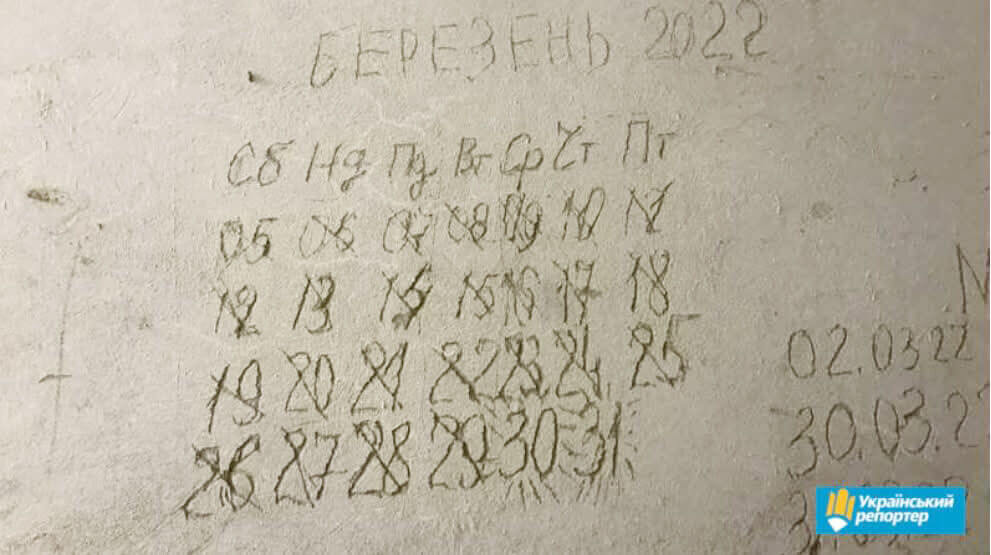 БЕРЕЗЕНЬ 2022
Сб Нд Пд Вт Ср Чт Пт
05 06 07 08 09 10 11
12 13 14 15 16 17 18
19 20 21 22 23 24 25
26 27 28 29 30 31
02.03 22
30.03.2
Український
репортер